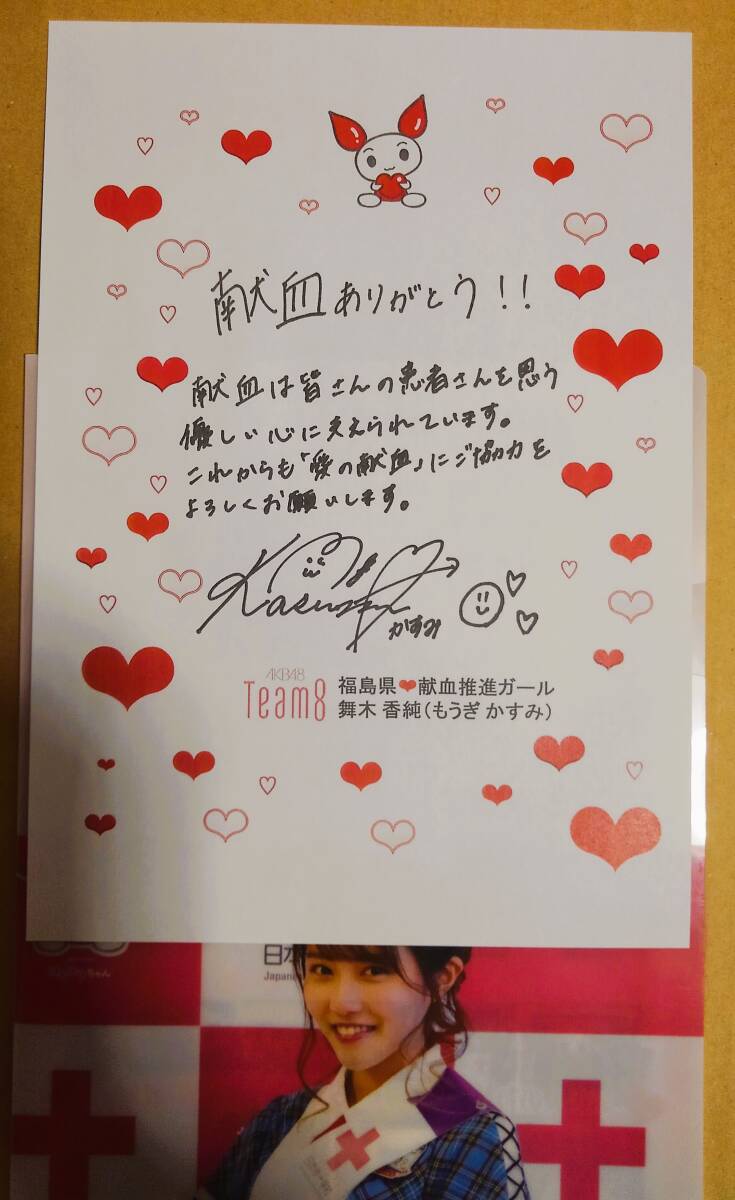 献血ありがとう!!
献血は皆さんの患者さんを思う
優しい心に支えられています。
これからも「愛の献血」にご協力を
よろしくお願いします。
Kasumi
かすみ
AKB48
Team8
福島県❤献血推進ガール
舞木 香純(もうぎ かすみ)
ちゃん
日本
Japan